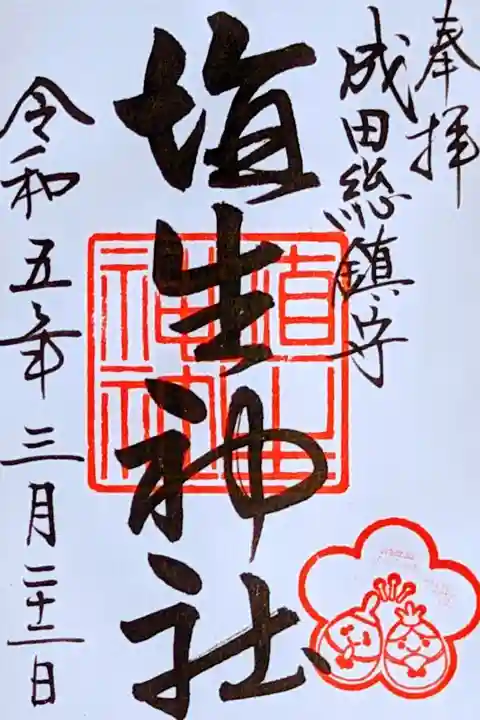 奉拝
成田総鎮守
埴生神社
令和五年三月二十二日
埴生
神社